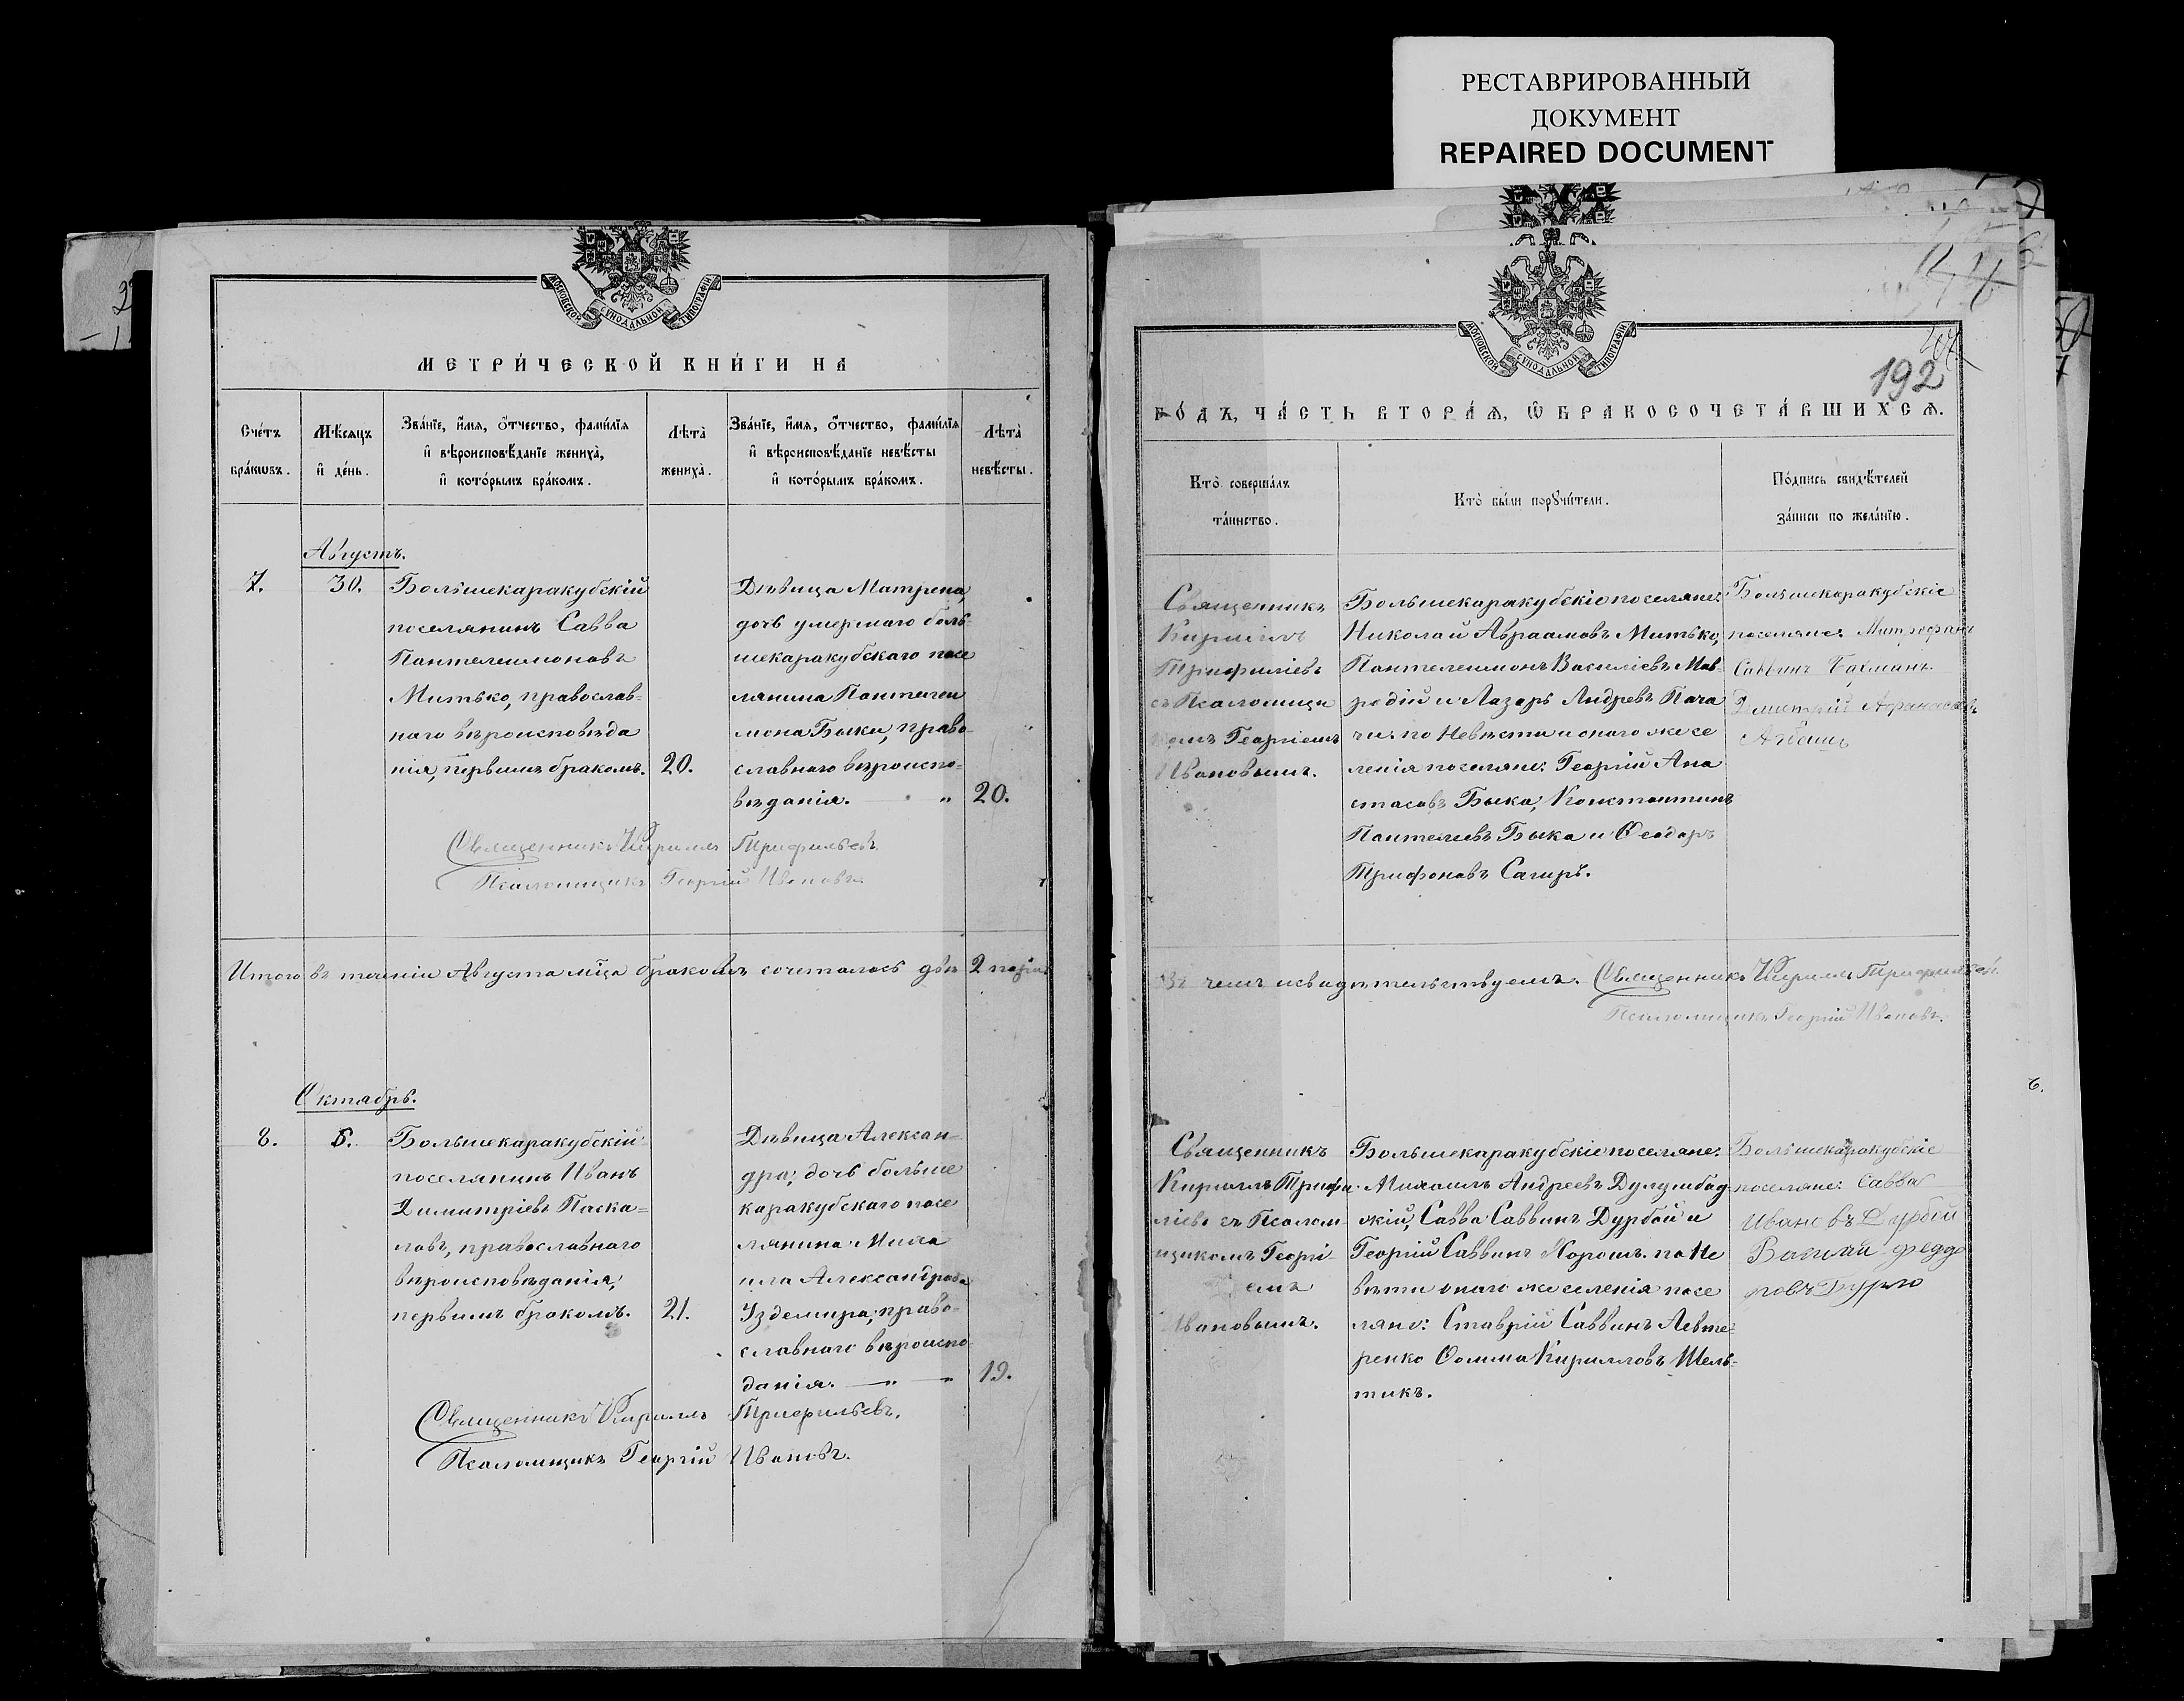 РЕСТАВРИРОВАННЫЙ
ДОКУМЕНТ
REPAIRED DOCUMENT
МОСКОВСКОЙ СУНОДАЛЬНОЙ ТИПОГРАФІИ
МЕТРИ́ЧЕСКОЙ КНИ́ГИ НА
Сче́тъ
бра́ковъ.
Мѣ́сяцъ
и҆ де́нь.
Зва́нїе, и҆́мя, ѻ҆́тчество, фами́лїя
и҆ вѣроисповѣ́данїе жениха̀,
и҆ кото́рымъ бра́комъ.
Лѣта̀
жениха̀.
Зва́нїе, и҆́мя, ѻ҆́тчество, фами́лїя
и҆ вѣроисповѣ́данїе невѣ́сты
и҆ кото́рымъ бра́комъ.
Лѣта̀
невѣ́сты.
Августъ.
7.
30.
Большекаракубскій
поселянинъ Савва
Пантелеимоновъ
Митько, православ-
наго вѣроисповѣда
нія, первымъ бракомъ.
20.
Дѣвица Матрена,
дочь умершаго боль-
шекаракубскаго посе
лянина Пантелеи
мона Быки, право-
славнаго вѣроиспо-
вѣданія. „
20.
Священникъ Кириллъ Трифильевъ
Псаломщикъ Георгій Ивановъ.
Итого въ теченіи Августа мца бракомъ сочеталось двѣ 2 пары
Октябрь.
8.
6.
Большекаракубскій
поселянинъ Иванъ
Димитріевъ Паска-
ловъ, православнаго
вѣроисповѣданія,
первымъ бракомъ.
21.
Дѣвица Алексан-
дра, дочь больше
каракубскаго посе
лянина Миха
ила Александрова
Уздемира, право-
славнаго вѣроиспо
данія. — „ — „
19.
Священникъ Кириллъ Трифильевъ.
Псаломщикъ Георгій Ивановъ.
МОСКОВСКОЙ СУНОДАЛЬНОЙ ТИПОГРАФІИ
192
ГО́ДЪ, ЧА́СТЬ ВТОРА́Ѧ, Ѽ БРАКОСОЧЕТА́ВШИХСѦ.
Кто̀ соверша́лъ
та́инство.
Кто̀ бы́ли порꙋчи́тели.
По́дпись свидѣ́телей
за́писи по жела́нїю.
Священникъ
Кириллъ
Трифиліевъ
съ Псаломщи
комъ Георгіемъ
Ивановымъ.
Большекаракубскіе поселяне:
Николай Авраамовъ Митько,
Пантелеимонъ Василіевъ Мав-
родій и Лазарь Андревъ Пача
чи. по Невѣсти онаго же се
ленія поселяне: Георгій Ана
стасовъ Быка, Константинъ
Пантелевъ Быка и Ѳеодоръ
Трифоновъ Сагиръ.
Большекаракубскіе
поселяне: Митрофанъ
Саввинъ
Дмитрій Афанасіевъ
Въ чемъ и свидѣтельствуемъ. Священникъ Кириллъ Трифильевъ.
Псаломщикъ Георгій Ивановъ.
Священникъ
Кириллъ Трифи-
ліевъ съ Псалом-
щикомъ Георгі-
емъ
Ивановымъ.
Большекаракубскіе поселяне:
Михаилъ Андреевъ Дулумбад-
жій, Савва Саввинъ Дурбой и
Георгій Саввинъ Хорошъ. по Не
вѣсти онаго же селенія посе
ляне: Ставрій Саввинъ Левте-
ренко Ѳомма Кирилловъ Шель-
тикъ.
Большекаракубскіе
поселяне: Савва
Ивановъ Дурбой
Василій Федо
ровъ